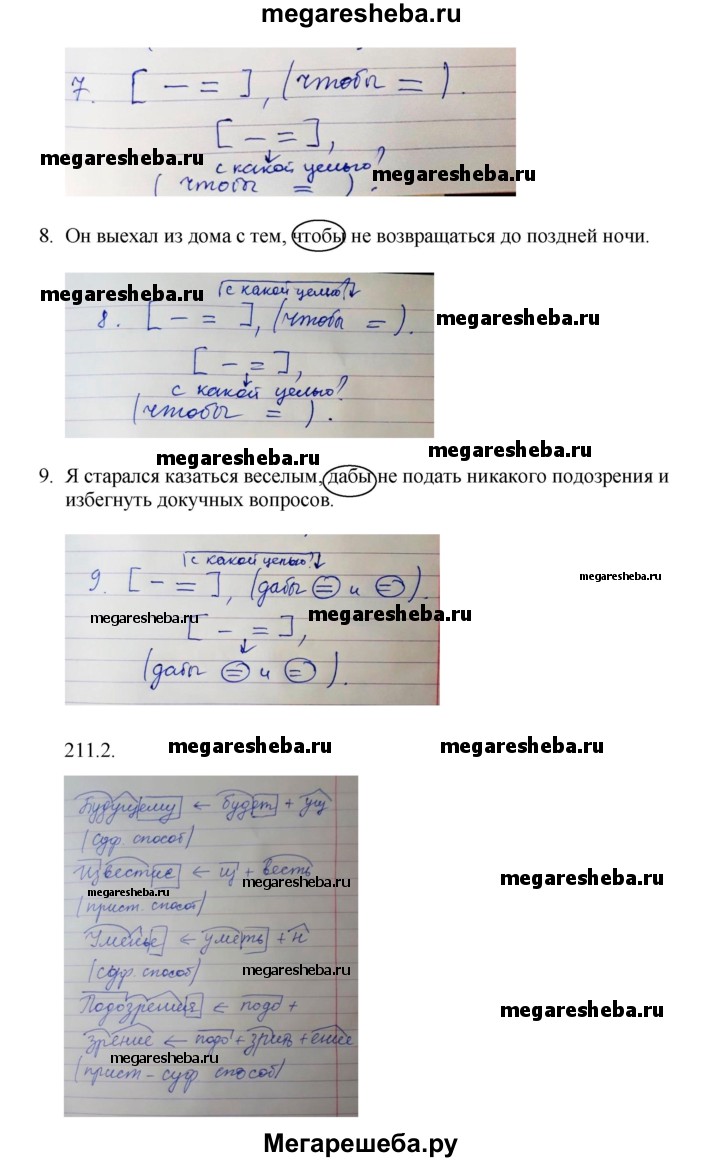 megaresheba.ru
7. [ — = ], (чтобы = ).
[ — = ],
megaresheba.ru
с какой целью?
megaresheba.ru
( чтобы = ).
8. Он выехал из дома с тем, чтобы не возвращаться до поздней ночи.
megaresheba.ru
с какой целью?
8. [ — = ], (чтобы = ).
megaresheba.ru
[ — = ],
с какой целью?
(чтобы = ).
megaresheba.ru
megaresheba.ru
9. Я старался казаться веселым, дабы не подать никакого подозрения и
избегнуть докучных вопросов.
с какой целью?
9. [ — = ], (дабы = и = ).
megaresheba.ru
megaresheba.ru
megaresheba.ru
[ — = ],
(дабы = и = ).
211.2.
megaresheba.ru
megaresheba.ru
Будущему ← будет + ущ
(суф. способ)
Известие ← из + весть
megaresheba.ru
megaresheba.ru
megaresheba.ru
(прист. способ)
Уменье ← уметь + н
(суф. способ)
megaresheba.ru
Подозрения ← подо +
megaresheba.ru
зрение ← подо + зрить + ение
megaresheba.ru
(прист – суф. способ)
Мегарешеба.ру